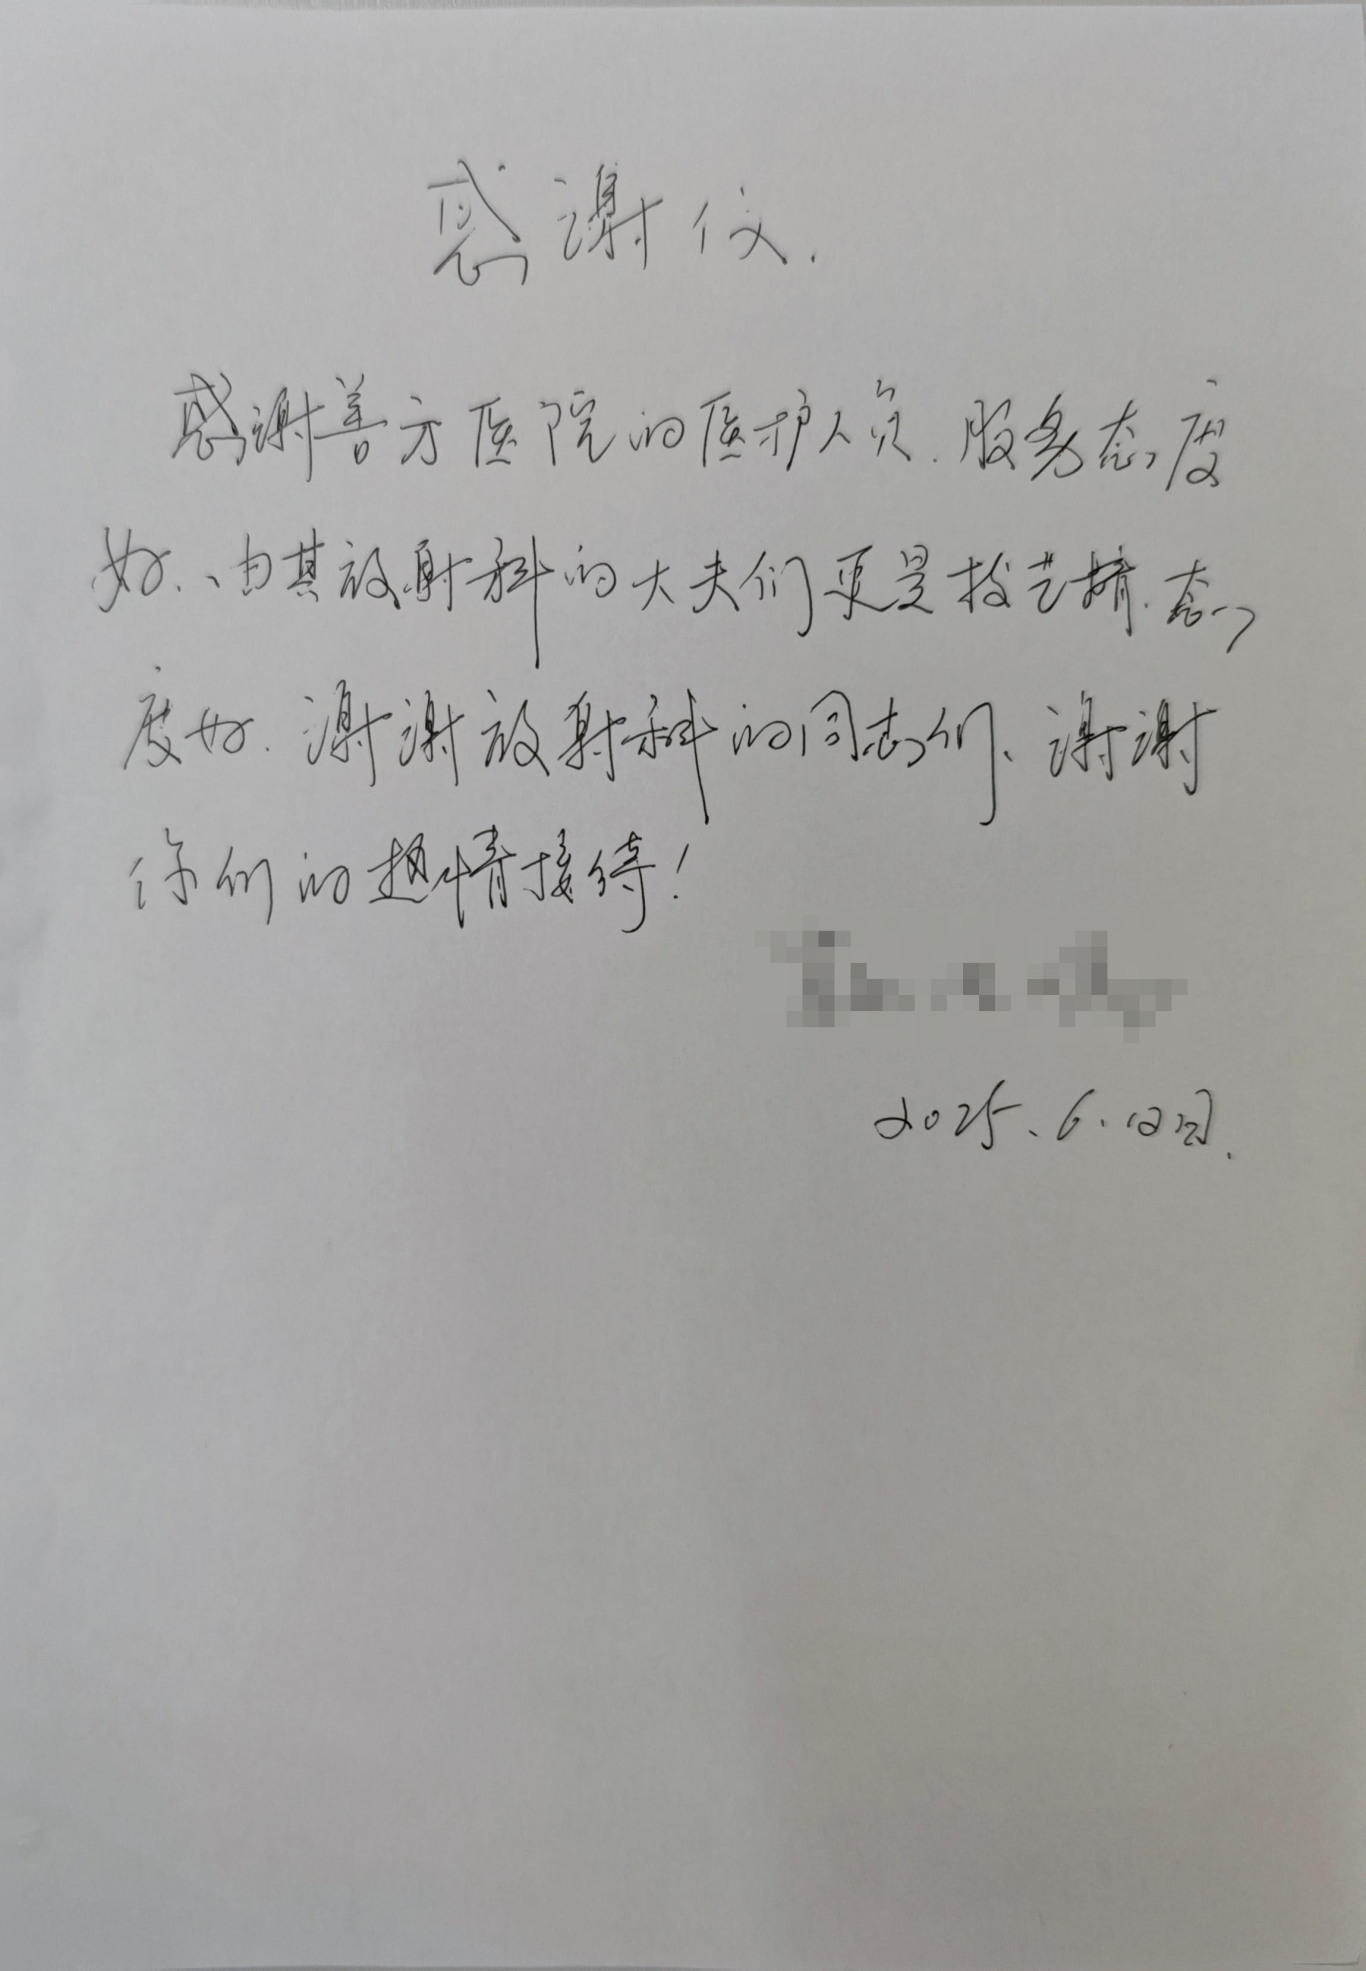 感谢仪.
感谢善方医院的医护人员.服务态度
好.、由其放射科的大夫们更是技艺精.态
度好.谢谢放射科的同志们、谢谢
你们的热情接待！
2025.6.12日.